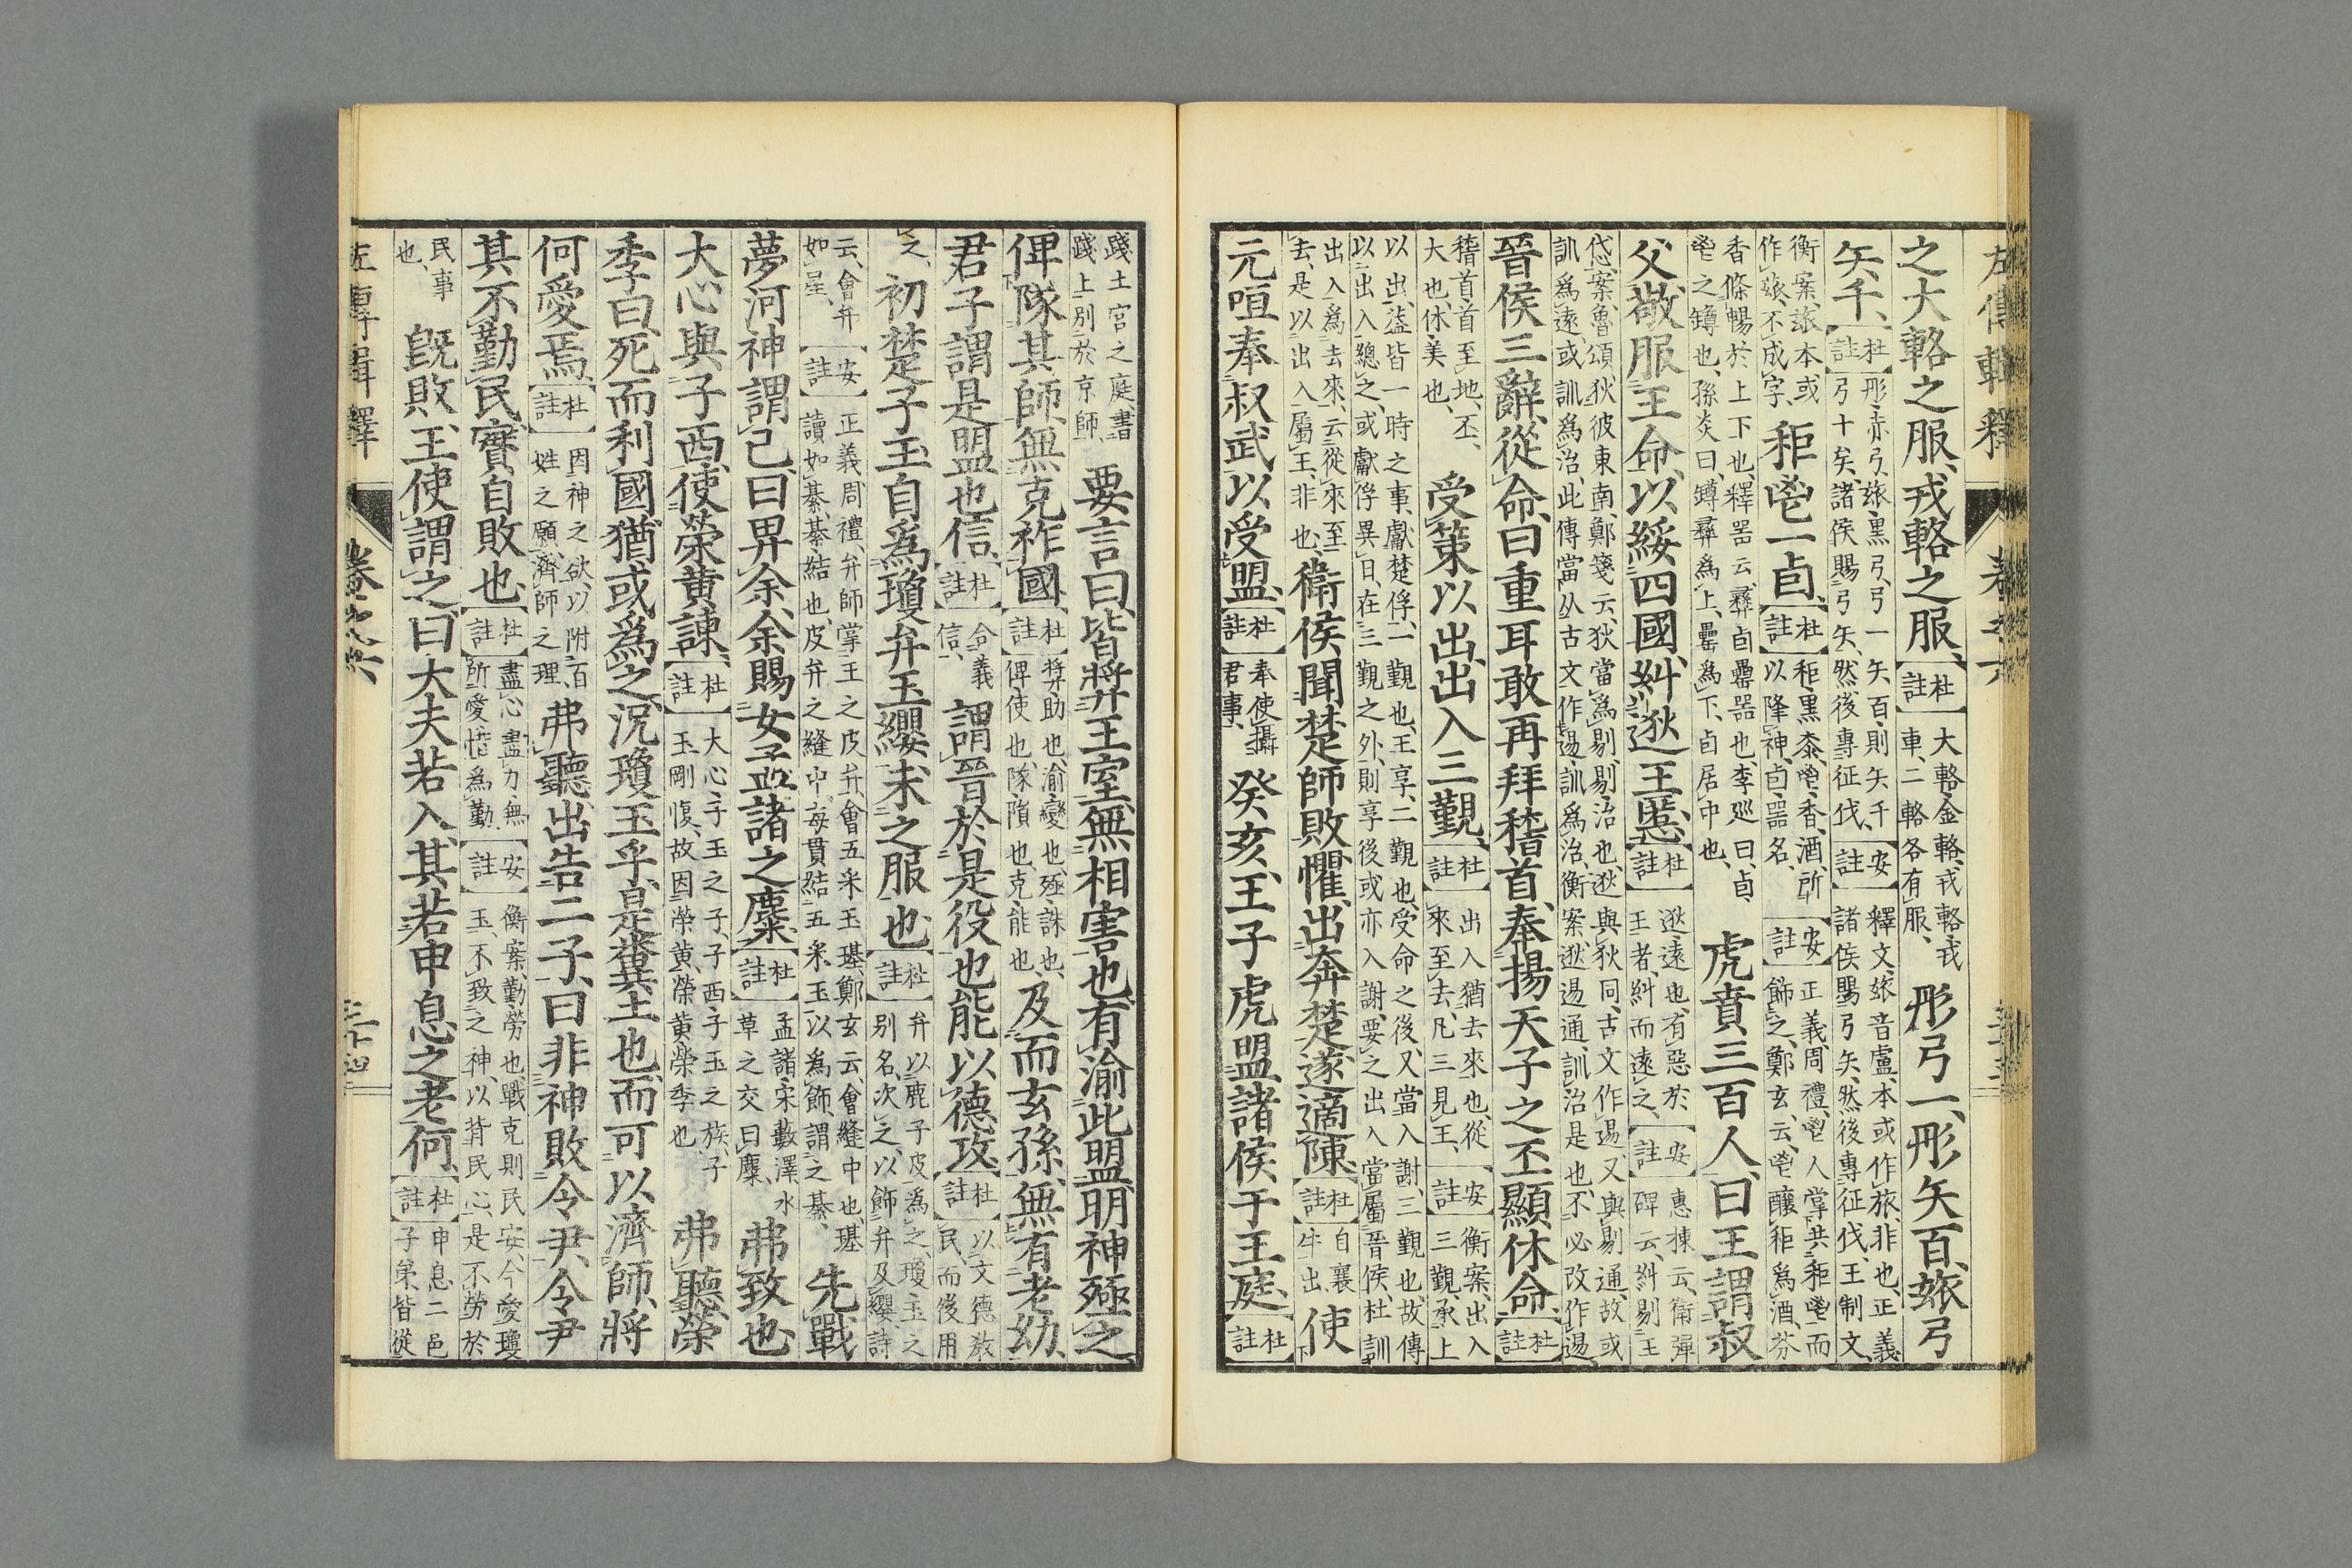 左傳輯釋　卷之六
之大輅之服、戎輅之服、杜註大輅金輅、戎輅戎車、二輅各有服、彤弓一、彤矢百、玈弓
矢千、杜註彤赤弓、玈黑弓、弓一矢百、則矢千弓十矣、諸侯賜弓矢、然後專征伐、安註釋文、玈音盧、本或作旅、非也、正義諸侯賜弓矢、然後專征伐、王制文、
衡案、玈本或作玈、不成字、秬鬯一卣、杜註秬黑黍、鬯香酒、所以降神、卣器名、安註正義、周禮、鬯人掌共秬鬯而飾之、鄭玄云、鬯釀秬爲酒、芬
香條暢於上下也、釋器云、彝卣罍器也、李巡曰、卣鬯之罇也、孫炎曰、罇彝爲上、罍爲下、卣居中也、虎賁三百人、曰、王謂叔
父、敬服王命、以綏四國、糾逖王慝、杜註逖遠也、有惡於王者、糾而遠之、安註惠棟云、衞彈碑云、糾剔王
慝、案、魯頌、狄彼東南、鄭箋云、狄當爲剔、剔治也、逖與狄同、古文作逷、又與剔通、故或訓爲遠、或訓爲治、此傳當从古文作逷、訓爲治、衡案、逖逷通、訓治是也、不必改作逷、
晉侯三辭、從命、曰、重耳敢再拜稽首、奉揚天子之丕顯休命、杜註
稽首、首至地、丕大也、休美也、受策以出、出入三覲、杜註出入猶去來也、從來至去、凡三見王、安註衡案、出入三覲、承上
以出、盜皆一時之事、獻楚俘、一覲也、王享、二覲也、受命之後、又當入謝、三覲也、故傳以出入總之、或獻俘異日、在三覲之外、則享後或亦入謝、要之出入當屬晉侯、杜訓
出入爲去來、云從來至去、是以出入屬王、非也、衞侯聞楚師敗、懼、出奔楚、遂適陳、杜註自襄牛出、使
元咺奉叔武以受盟、杜註奉使攝君事、癸亥、王子虎盟諸侯于王庭、杜註
踐土宮之庭、書踐土別於京師、要言曰、皆奬王室、無相害也、有渝此盟、明神殛之、
俾隊其師、無克祚國、杜註奬助也、渝變也、殛誅也、俾使也、隊隕也、克能也、及而玄孫、無有老幼、
君子謂是盟也信、杜註合義信、謂晉於是役也、能以德攻、杜註以文德教民、而後用
之、初楚子玉自爲瓊弁玉纓、未之服也、杜註弁以鹿子皮爲之、瓊玉之別名、次之、以飾弁及纓、詩
云、會弁如星、安註正義、周禮、弁師掌王之皮弁、會五采玉璂、鄭玄云、會縫中也、璂讀如綦、綦結也、皮弁之縫中、每貫結五采玉、以爲飾、謂之綦、先戰
夢河神謂己、曰、畀余、余賜女孟諸之麋、杜註孟諸宋藪澤、水草之交曰麋、弗致也、
大心與子西使榮黃諫、杜註大心子玉之子、子西子玉之族、子玉剛愎、故因榮黃、榮黃榮季也、弗聽、榮
季曰、死而利國、猶或爲之、況瓊玉乎、是糞土也、而可以濟師、將
何愛焉、杜註因神之欲、以附百姓之願、濟師之理、弗聽、出告二子曰、非神敗令尹、令尹
其不勤民、實自敗也、杜註盡心盡力、無所愛惜爲勤、安註衡案、勤勞也、戰克則民安、今愛瓊玉、不致之神、以背民心、是不勞於
民事也、旣敗、王使謂之曰、大夫若入、其若申息之老何、杜註申息二邑子弟、皆從
左傳輯釋　卷之六　三十四